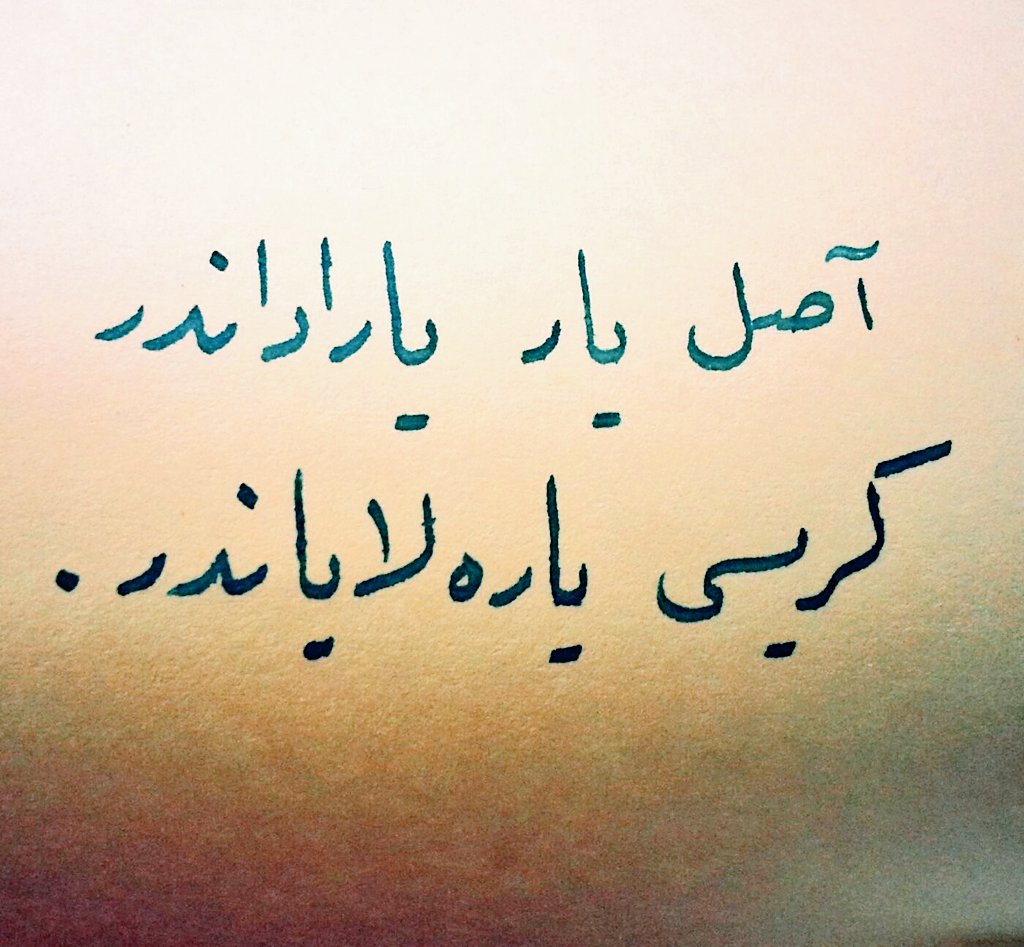 آصل یار یاراداندر
کریسی یاره‌لایاندر.